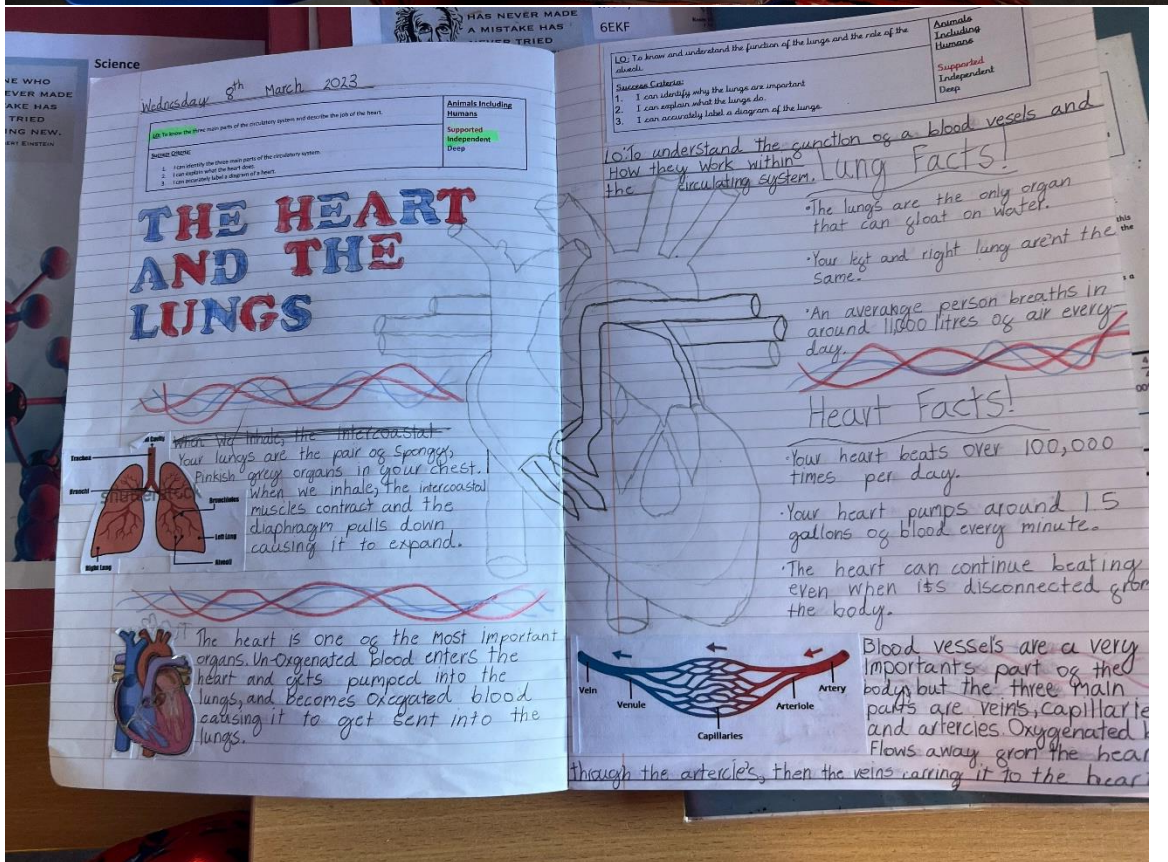 HAS NEVER MADE
A MISTAKE HAS
NEVER TRIED
6EKF
NE WHO
EVER MADE
AKE HAS
TRIED
ING NEW.
ERT EINSTEIN
Science
Wednesday 8th March 2023
LO: To know the three main parts of the circulatory system and describe the job of the heart.
Success Criteria:
1. I can identify the three main parts of the circulatory system.
2. I can explain what the heart does.
3. I can accurately label a diagram of a heart.
Animals Including
Humans
Supported
Independent
Deep
THE HEART
AND THE
LUNGS
When we inhale, the intercoastal
Your lungs are the pair of spongy,
Pinkish grey organs in your chest.
When we inhale, the intercoastal
muscles contract and the
diaphragm pulls down
causing it to expand.
Cavity
Trachea
Bronchi
shutterstock
Bronchioles
Left Lung
Alveoli
Right Lung
The heart is one of the most important
organs. Un-Oxgenated blood enters the
heart and gets pumped into the
lungs, and becomes oxegnated blood
causing it to get sent into the
lungs.
LO: To know and understand the function of the lungs and the role of the
alveoli.
Success Criteria:
1. I can identify why the lungs are important
2. I can explain what the lungs do.
3. I can accurately label a diagram of the lungs.
Animals
Including
Humans
Supported
Independent
Deep
LO: To understand the function of a blood vesels and
How they work within
the circulating system.
Lung Facts!
•The lungs are the only organ
that can float on water.
•Your left and right lung aren't the
same.
•An averange person breaths in
around 11,000 litres of air every
day.
Heart Facts!
•Your heart beats over 100,000
times per day.
•Your heart pumps around 1.5
gallons of blood every minute.
•The heart can continue beating
even when its disconnected from
the body.
Vein
Venule
Capillaries
Arteriole
Artery
Blood vessel's are a very
importants part of the
body, but the three main
parts are veins, capillarie
and artercies. Oxygenated b
Flows away from the hear
through the artercie's, then the veins carring it to the hear
this
the